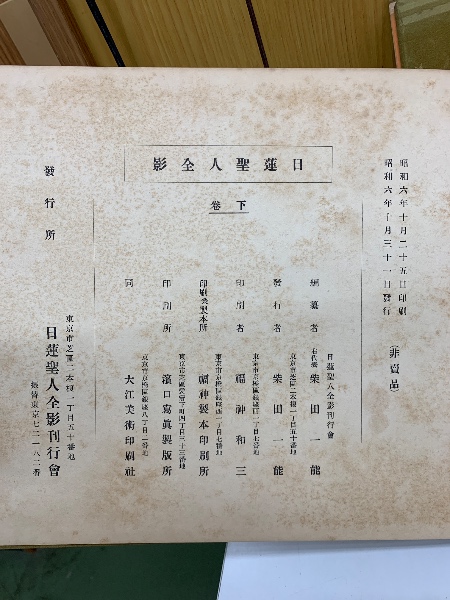 昭和六年十月二十五日印刷
昭和六年十月三十一日發行
(非賣品)
日蓮聖人全影
下卷
日蓮聖人全影刊行會
編纂者 右代表 柴田一能
東京市芝區二本榎一丁目五十番地
發行者 柴田一能
東京市京橋區銀座西一丁目七番地
印刷者 福神和三
東京市京橋區銀座西一丁目七番地
印刷及製本所 福神製本印刷所
四丁目三十三番地
印刷所 濱口寫眞製版所
東京市京橋區銀座八丁目二番地
同 大江美術印刷社
發行所
東京市芝區二本榎一丁目五十番地
日蓮聖人全影刊行會
振替東京七二一八二番